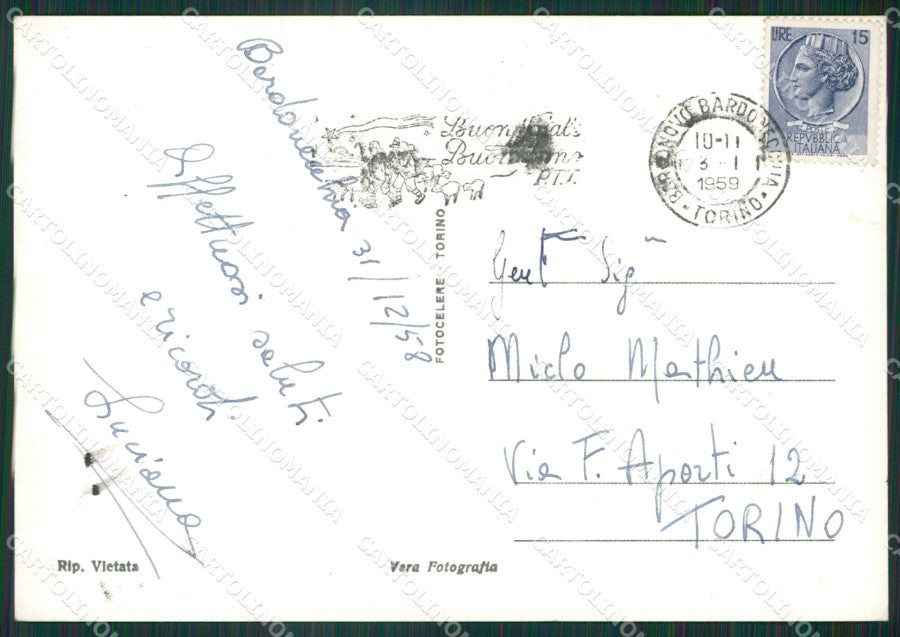 Bardonecchia 31/12/58
Affettuosi saluti
e ricordi
Luciano
Buon Natale
Buon
P.T.T.
LIRE 15
POSTE
REPVBBLICA
ITALIANA
BORGONOVO BARDONECCHIA
10-11
3 - 1
1959
• TORINO •
FOTOCELERE TORINO
Gent Sig
Miclo Mathieu
Via F. Aporti 12
TORINO
Rip. Vietata
Vera Fotografia
CARTOLINOMANIA